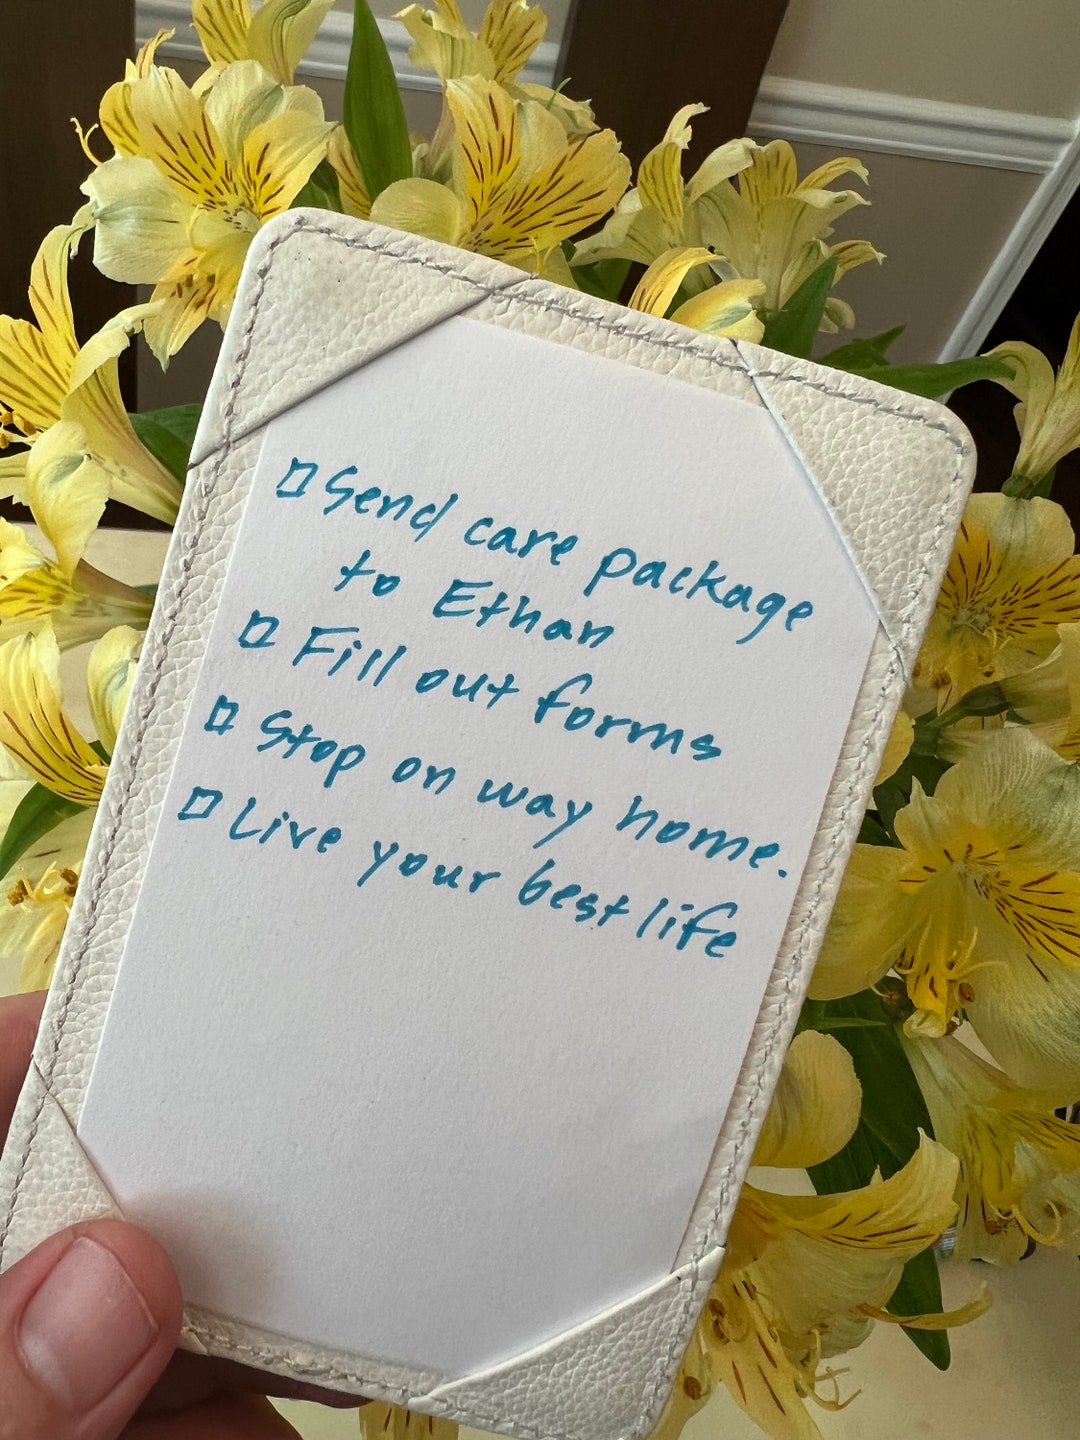 ☐ Send care package
to Ethan
☐ Fill out forms
☐ Stop on way home.
☐ Live your best life